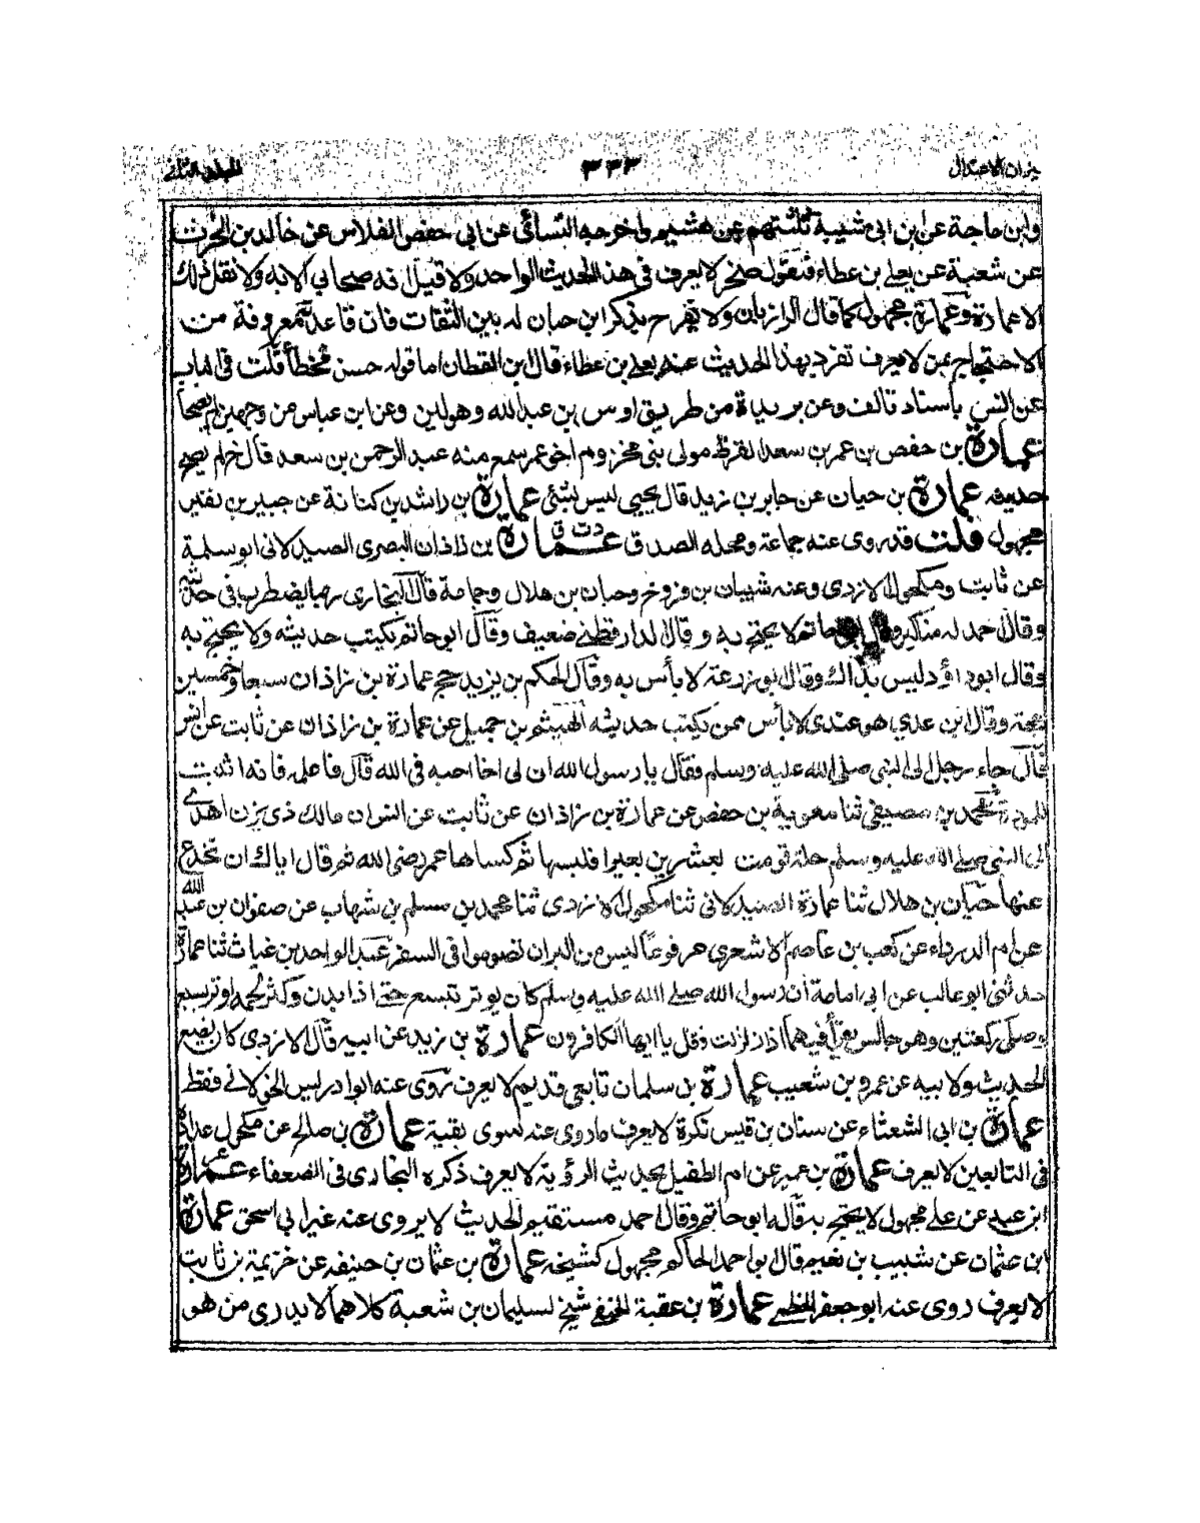 ميزان الاعتدال ٣٣٣ المجلد الثاني
وابن ماجة عن ابن ابى شيبة ثلثتهم عن هشيم واخرجه النسائى عن ابى حفص الفلاس عن خالد بن الحرث
عن شعبة عن يعلى بن عطاء فنقول صخر لا يعرف فى هذا الحديث الواحد ولا قيل انه صحابي الا به ولا نقل ذلك
الا عمارة وعمارة مجهول كما قال الرازيان ولا تفرح بذكر ابن حبان له بين الثقات فان قاعدته معروفة من
الاحتجاج بمن لا يعرف تفرد بهذا الحديث عنه يعلى بن عطاء قال ابن القطان اما قوله حسن فخطأ قلت فى الباب
عن انس باسناد تالف وعن بريدة من طريق اوس بن عبد الله وهو لين وعن ابن عباس من وجهين لم يصحا
عمارة بن حفص بن عمر بن سعد القرظ مولى بنى مخزوم اخو عمر سمع منه عبد الرحمن بن سعد قال خ لم يصح
حديثه عمارة بن حيان عن جابر بن زيد قال يحيى ليس بشئ عمارة بن راشد بن كنانة عن جبير بن نفير
مجهول قلت قد روى عنه جماعة ومحله الصدق عمارة د ت ق بن زاذان البصرى الصيدلانى ابو سلمة
عن ثابت ومكحول الازدى وعنه شيبان بن فروخ وحبان بن هلال وجماعة قال البخارى ربما يضطرب فى حديثه
وقال احمد له مناكير وقال ابو حاتم لا يحتج به وقال الدارقطنى ضعيف وقال ابو حاتم يكتب حديثه ولا يحتج به
وقال ابو داؤد ليس بذاك وقال ابو زرعة لا بأس به وقال الحكم بن يزيد حج عمارة بن زاذان سبعا وخمسين
حجة وقال ابن عدي هو عندى لا بأس ممن يكتب حديثه الهيثم بن جميل عن عمارة بن زاذان عن ثابت عن انس
قال جاء رجل الى النبى صلى الله عليه وسلم فقال يا رسول الله ان لى اخا احبه فى الله قال فاعلمه فانه اثبت
للمودة محمد بن مصفى ثنا معوية بن حفص عن عمارة بن زاذان عن ثابت عن انس ان مالك ذى يزن اهدى
الى النبى صلى الله عليه وسلم حلة قومت بعشرين بعيرا فلبسها ثم كساها عمر رضى الله ثم قال اياك ان تخدع
عنها حبان بن هلال ثنا عمارة الصيدلانى ثنا مكحول الازدى ثنا محمد بن مسلم بن شهاب عن صفوان بن عبد الله
عن ام الدرداء عن كعب بن عاصم الاشعرى مرفوعا ليس من البر ان تصوموا فى السفر عبد الواحد بن غياث ثنا عمارة
حدثنى ابو غالب عن ابى امامة ان رسول الله صلى الله عليه وسلم كان يوتر بتسع حتى اذا بدن وكثر لحمه اوتر بسبع
وصلى ركعتين وهو جالس يقرأ فيهما اذا زلزلت وقل يا ايها الكافرون عمارة بن زيد عن ابيه قال الازدى كان يضع
الحديث ولابيه عن عمرو بن شعيب عمارة بن سلمان تابعى قديم لا يعرف روى عنه ابو ادريس الخولانى فقط
عمارة بن ابى الشعثاء عن سنان بن قيس نكرة لا يعرف ما روى عنه سوى بقية عمارة بن صالح عن مكحول عداده
فى التابعين لا يعرف عمارة بن عمير عن ام الطفيل بحديث الرؤية لا يعرف ذكره البخارى فى الضعفاء عمارة
ابن عبد عن على مجهول لا يحتج به قاله ابو حاتم وقال احمد مستقيم الحديث لا يروى عنه غير ابى اسحق عمارة
ابن عثمان عن شبيب بن نعيم قال ابو احمد الحاكم مجهول كشيخه عمارة بن عثمان بن حنيف عن خزيمة بن ثابت
لا يعرف روى عنه ابو جعفر الخطمى عمارة بن عقبة الحنفى شيخ لسليمان بن شعبة كلاهما لا يدرى من هو